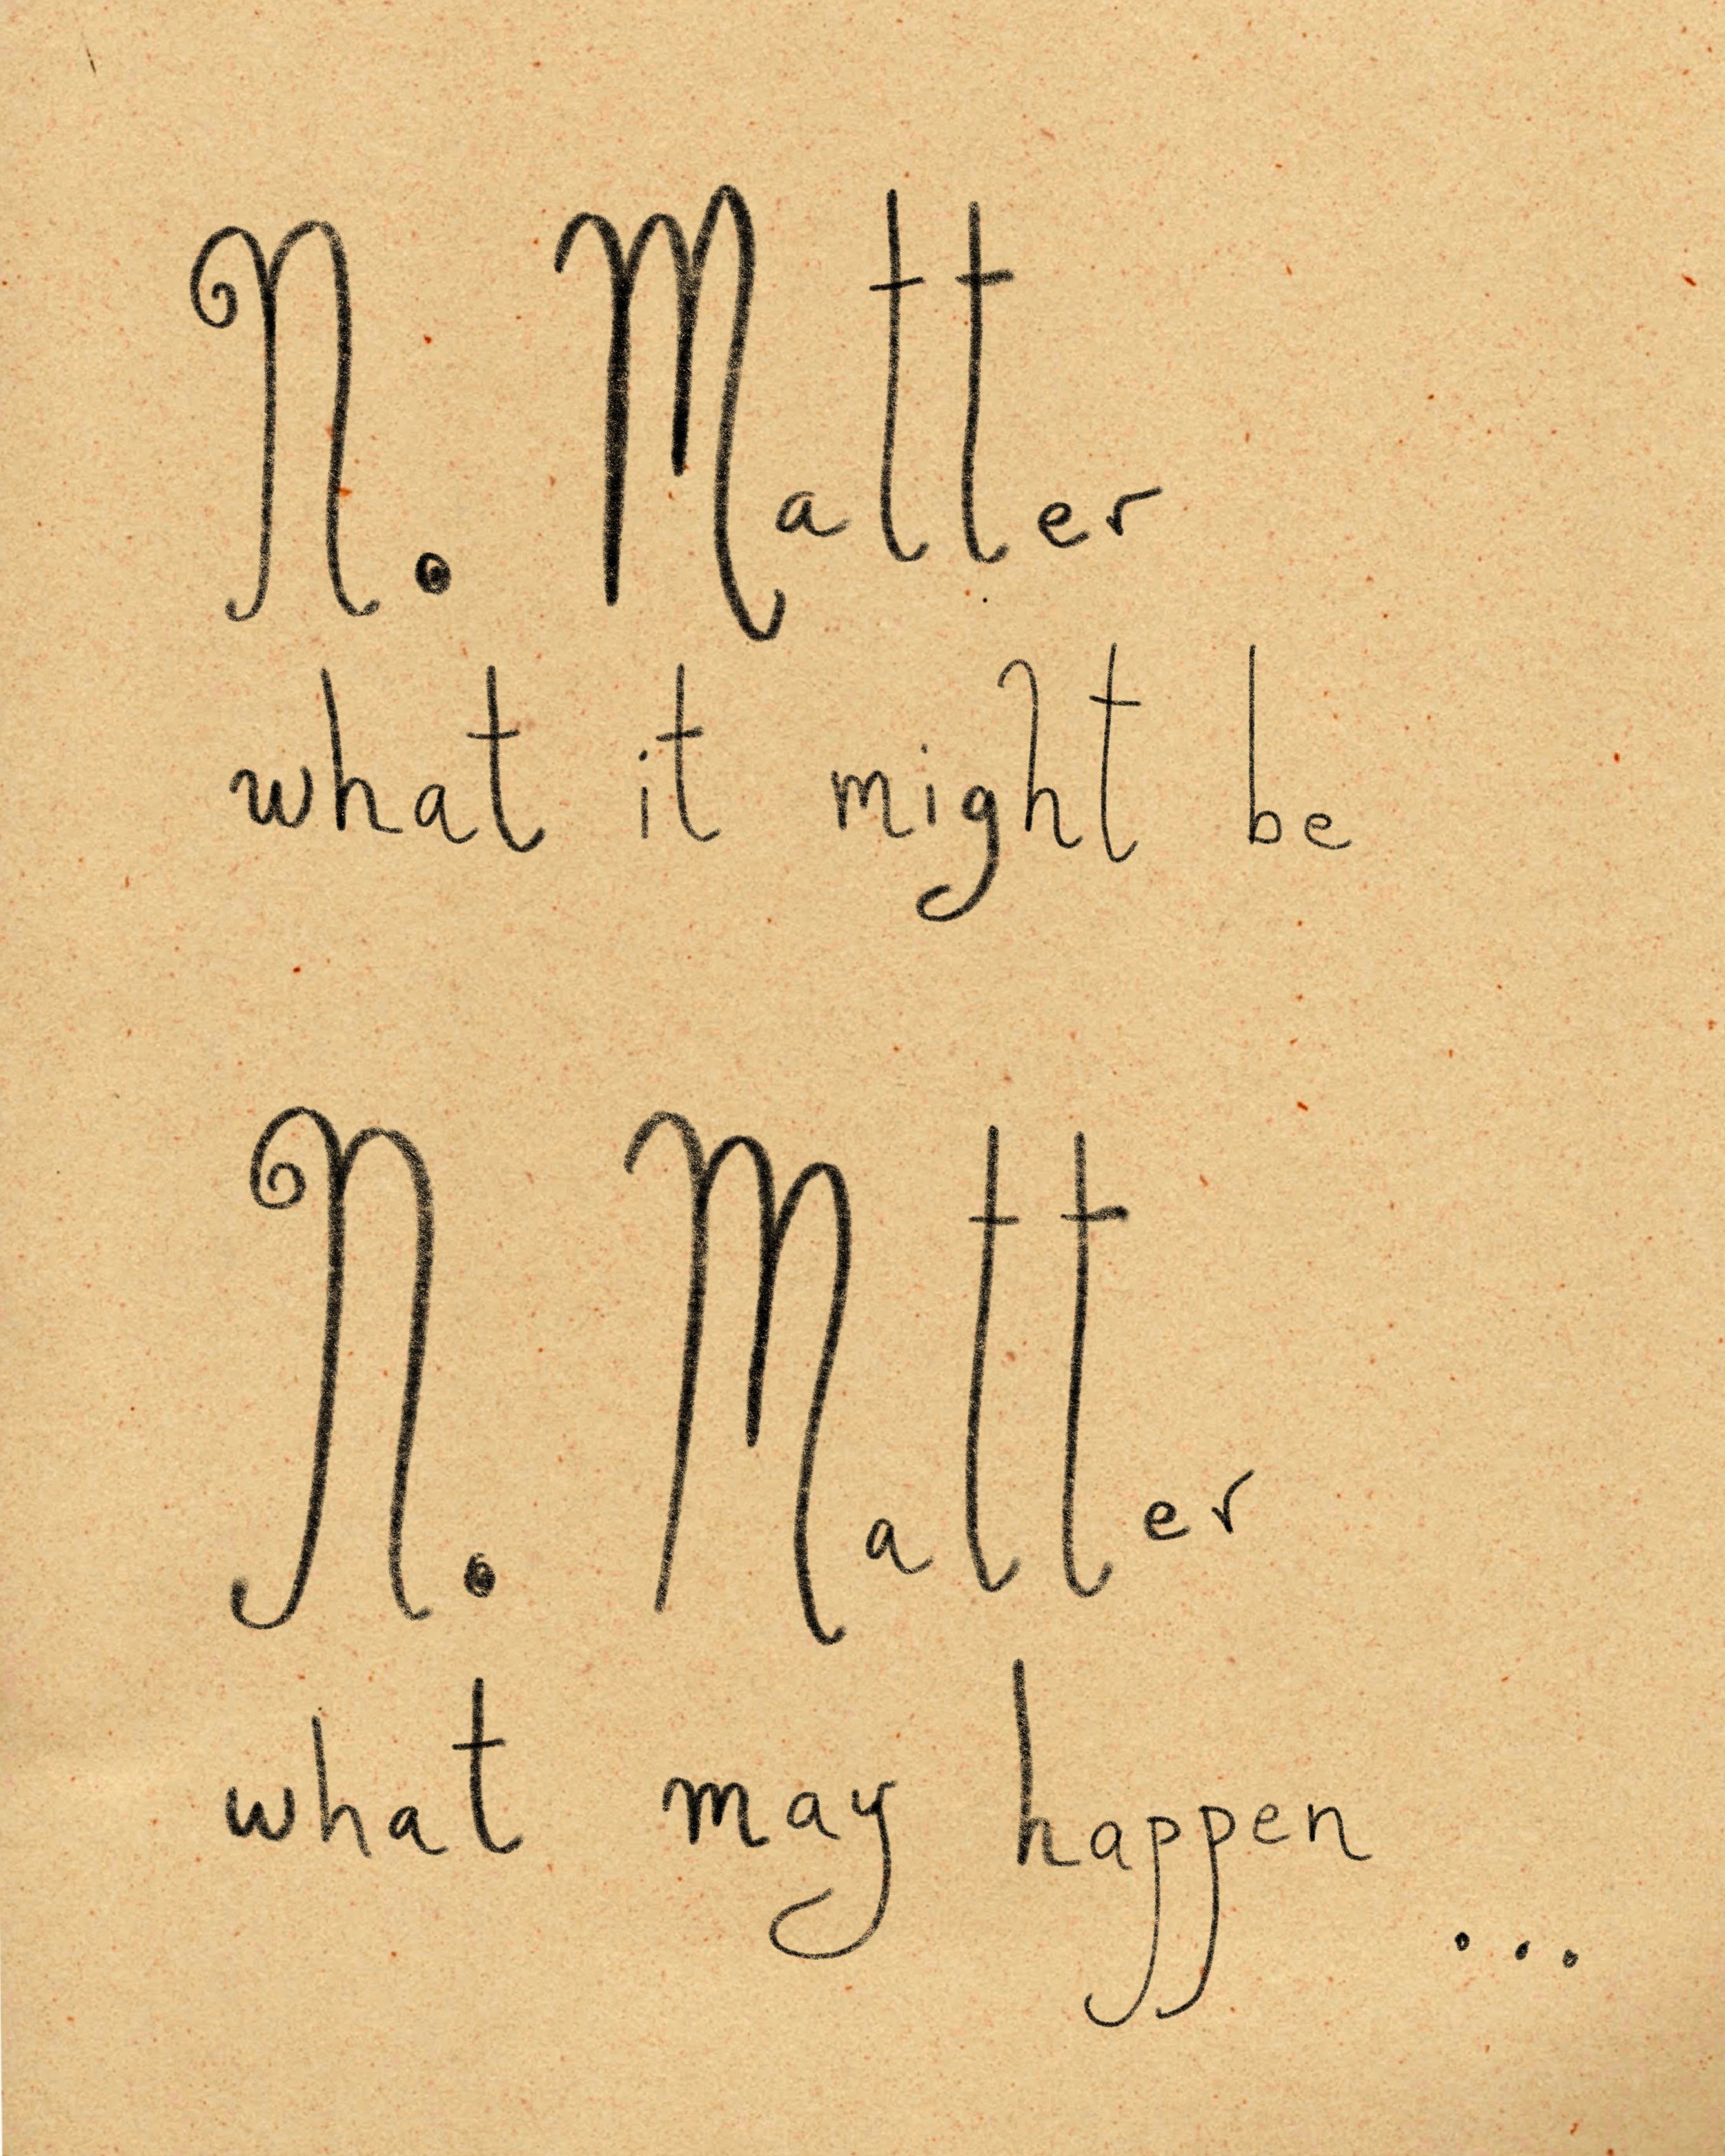 N. Matter
what it might be
N. Matter
what may happen ...